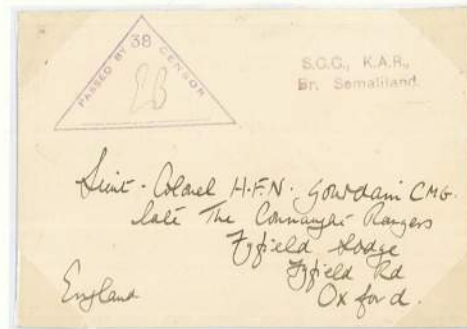 PASSED BY 38 CENSOR
S.C.C., K.A.R.,
Br. Somaliland.
Lieut-Colonel H.F.N. Gourdain CMG.
late The Connaught Rangers
Fyfield Lodge
Fyfield Rd
Oxford.
England